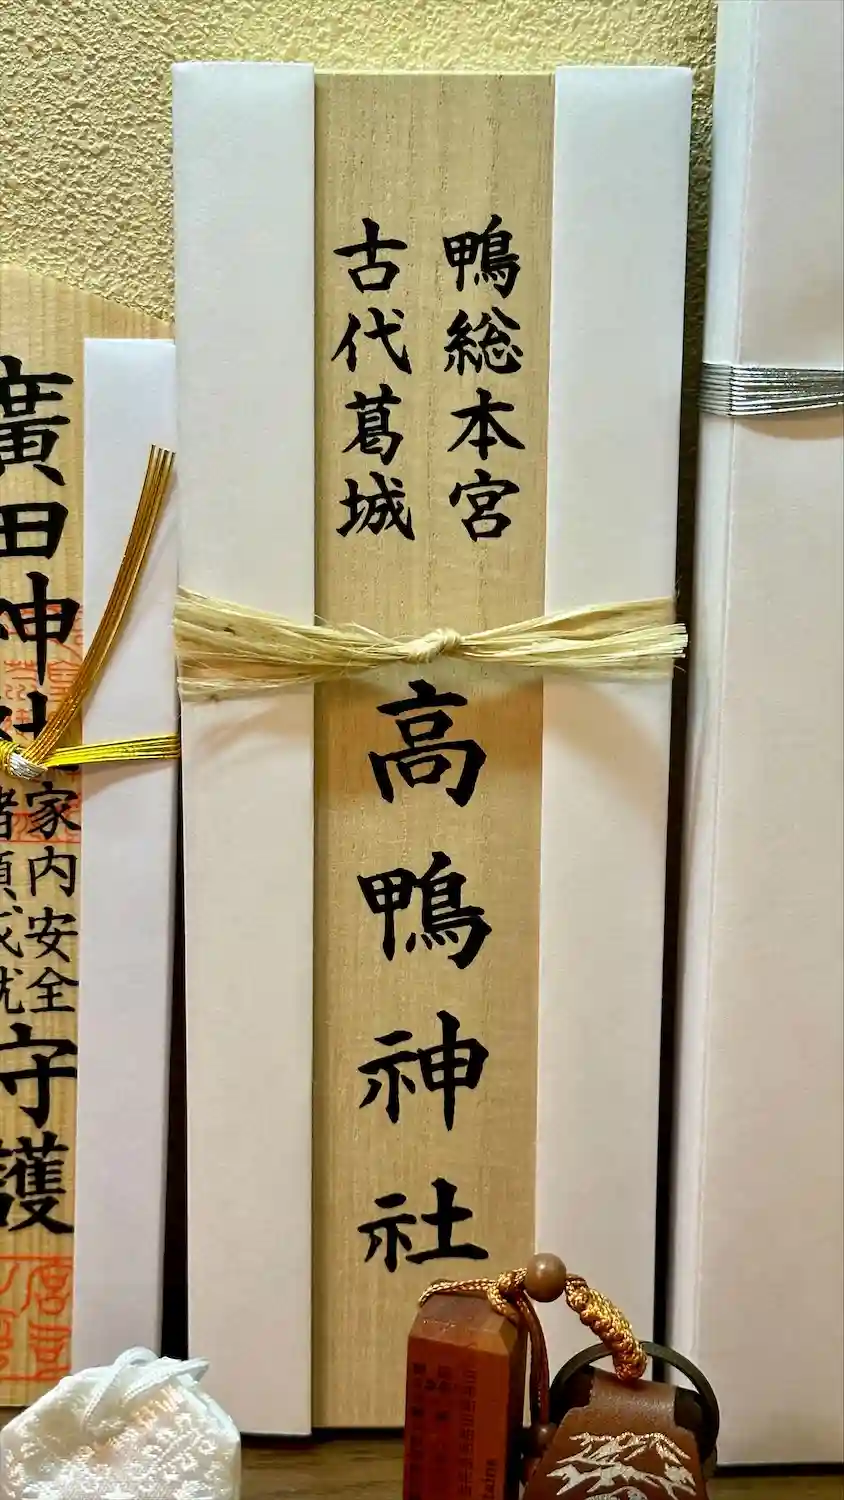 鴨総本宮
古代葛城
高鴨神社
廣田神社
家内安全
諸願成就
守護